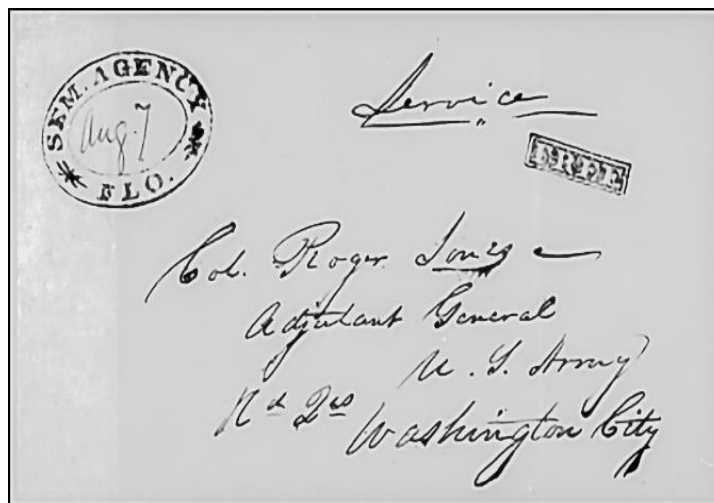 SEM. AGENCY
Aug. 7
FLO.
Service
FREE
Col. Roger Jones
Adjutant General
U. S. Army
Hd Qrs Washington City